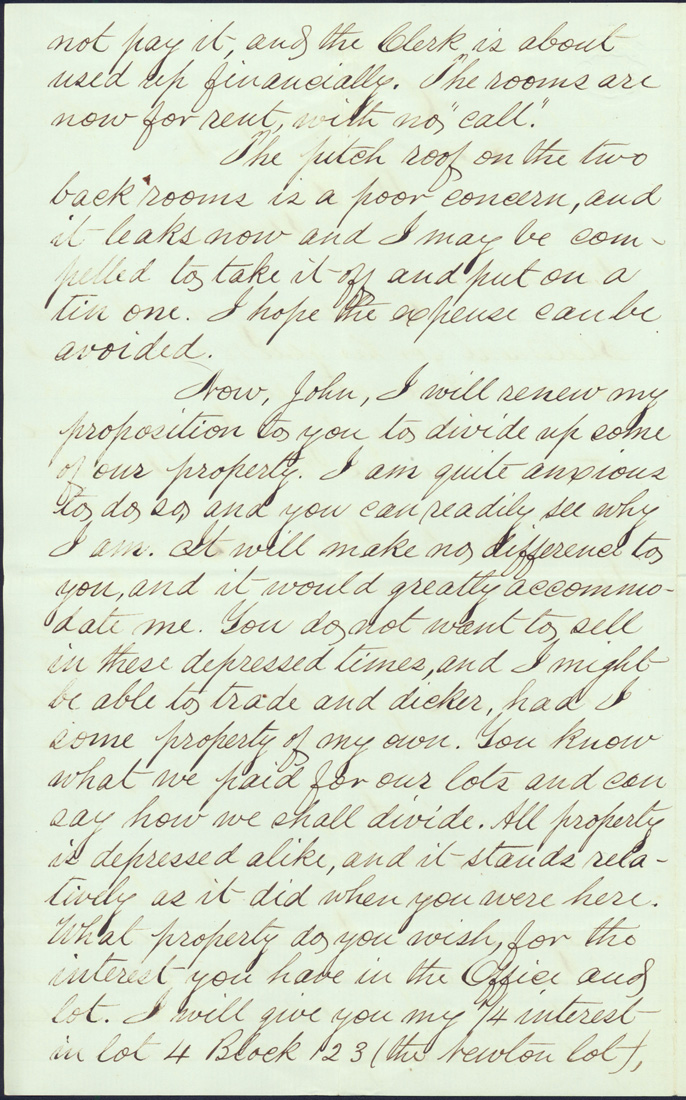 not pay it, and the Clerk is about
used up financially. The rooms are
now for rent, with no "call".
The pitch roof on the two
back rooms is a poor concern, and
it leaks now and I may be com-
pelled to take it off and put on a
tin one. I hope the expense can be
avoided.
Now, John, I will renew my
proposition to you to divide up some
of our property. I am quite anxious
to do so, and you can readily see why
I am. It will make no difference to
you, and it would greatly accommo-
date me. You do not want to sell
in these depressed times, and I might
be able to trade and dicker, had I
some property of my own. You know
what we paid for our lots and can
say how we shall divide. All property
is depressed alike, and it stands rela-
tively as it did when you were here.
What property do you wish, for the
interest you have in the Office and
lot. I will give you my 1/4 interest
in lot 4 Block 123 (the Newton lot),